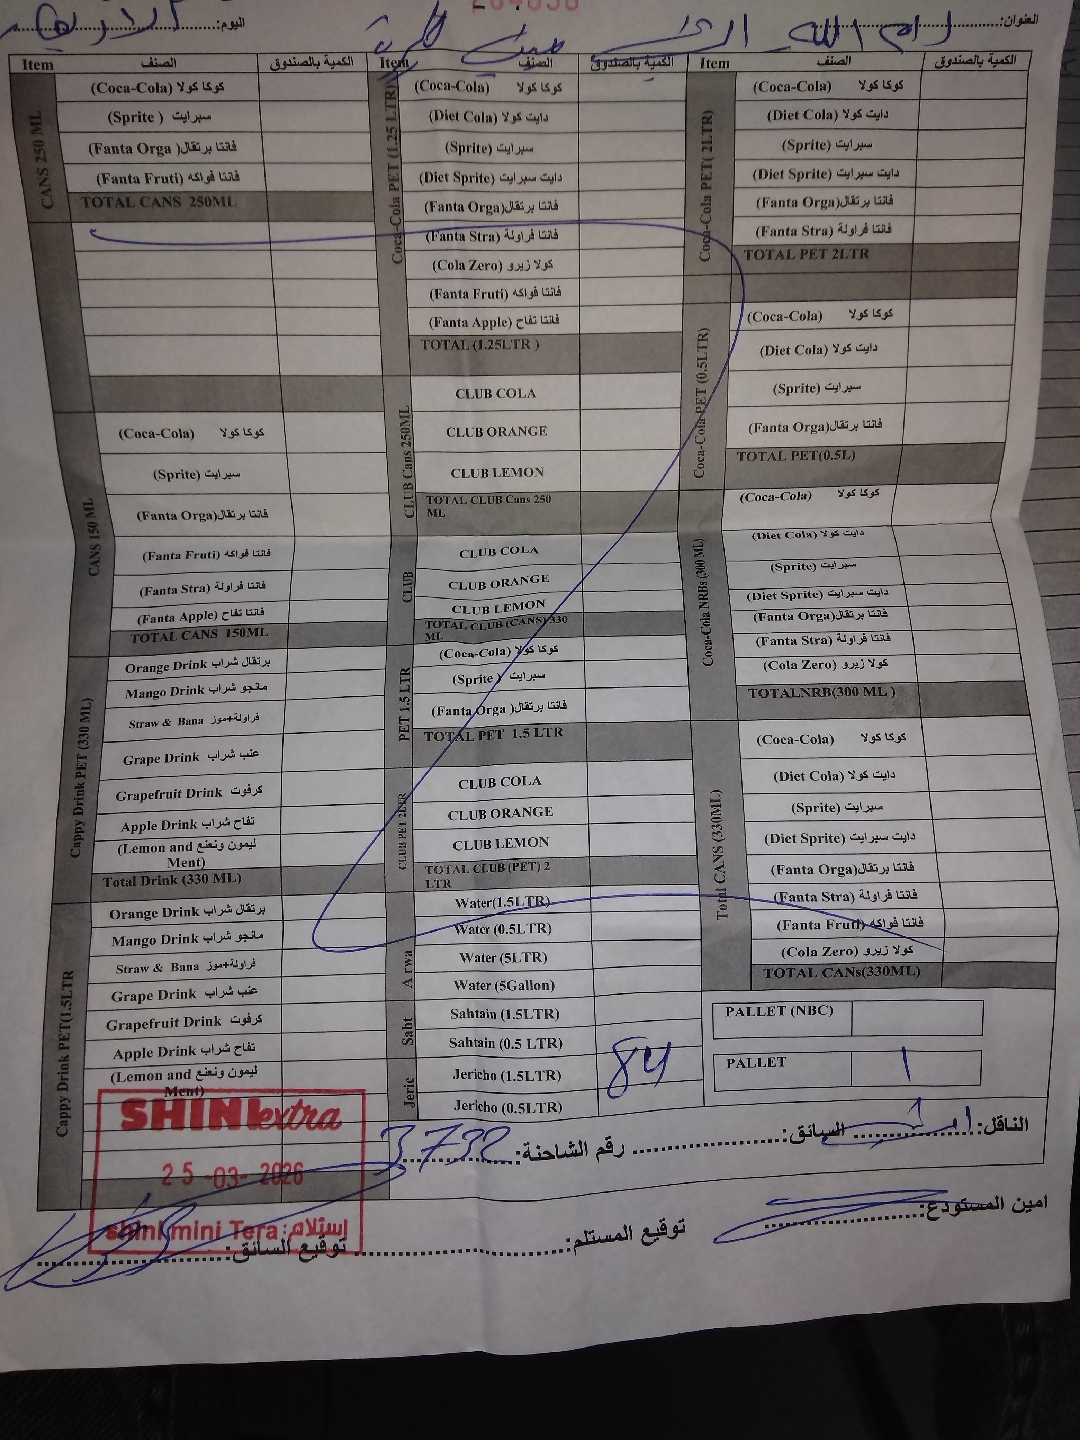 العنوان: رام الله
اليوم: الاربعاء
Item الصنف الكمية بالصندوق
CANS 250 ML
(Coca-Cola) كوكا كولا
(Sprite ) سبرايت
(Fanta Orga )فانتا برتقال
(Fanta Fruti) فانتا فواكه
TOTAL CANS 250ML
CANS 150 ML
(Coca-Cola) كوكا كولا
(Sprite) سبرايت
(Fanta Orga)فانتا برتقال
(Fanta Fruti) فانتا فواكه
(Fanta Stra) فانتا فراولة
(Fanta Apple) فانتا تفاح
TOTAL CANS 150ML
Cappy Drink PET (330 ML)
Orange Drink برتقال شراب
Mango Drink مانجو شراب
Straw & Bana فراولة+موز
Grape Drink عنب شراب
Grapefruit Drink كرفوت
Apple Drink تفاح شراب
(Lemon and ليمون ونعنع
Ment)
Total Drink (330 ML)
Cappy Drink PET(1.5LTR
Orange Drink برتقال شراب
Mango Drink مانجو شراب
Straw & Bana فراولة+موز
Grape Drink عنب شراب
Grapefruit Drink كرفوت
Apple Drink تفاح شراب
(Lemon and ليمون ونعنع
Ment)
Item الصنف الكمية بالصندوق
Coca-Cola PET (1.25 LTR)
(Coca-Cola) كوكا كولا
(Diet Cola) دايت كولا
(Sprite) سبرايت
(Diet Sprite) دايت سبرايت
(Fanta Orga)فانتا برتقال
(Fanta Stra) فانتا فراولة
(Cola Zero) كولا زيرو
(Fanta Fruti) فانتا فواكه
(Fanta Apple) فانتا تفاح
TOTAL (1.25LTR )
CLUB Cans 250ML
CLUB COLA
CLUB ORANGE
CLUB LEMON
TOTAL CLUB Cans 250
ML
CLUB
CLUB COLA
CLUB ORANGE
CLUB LEMON
TOTAL CLUB (CANS) 330
ML
PET 1.5 LTR
(Coca-Cola) كوكا كولا
(Sprite ) سبرايت
(Fanta Orga )فانتا برتقال
TOTAL PET 1.5 LTR
CLUB PET 2LTR
CLUB COLA
CLUB ORANGE
CLUB LEMON
TOTAL CLUB (PET) 2
LTR
Arwa
Water(1.5LTR)
Water (0.5LTR)
Water (5LTR)
Water (5Gallon)
Saht
Sahtain (1.5LTR)
Sahtain (0.5 LTR)
Jeric
Jericho (1.5LTR) 84
Jericho (0.5LTR)
Item الصنف الكمية بالصندوق
Coca-Cola PET( 2LTR)
(Coca-Cola) كوكا كولا
(Diet Cola) دايت كولا
(Sprite) سبرايت
(Diet Sprite) دايت سبرايت
(Fanta Orga)فانتا برتقال
(Fanta Stra) فانتا فراولة
TOTAL PET 2LTR
Coca-Cola PET (0.5LTR)
(Coca-Cola) كوكا كولا
(Diet Cola) دايت كولا
(Sprite) سبرايت
(Fanta Orga)فانتا برتقال
TOTAL PET(0.5L)
Coca-Cola NRBs (300 ML)
(Coca-Cola) كوكا كولا
(Diet Cola) دايت كولا
(Sprite) سبرايت
(Diet Sprite) دايت سبرايت
(Fanta Orga)فانتا برتقال
(Fanta Stra) فانتا فراولة
(Cola Zero) كولا زيرو
TOTALNRB(300 ML )
Total CANS (330ML)
(Coca-Cola) كوكا كولا
(Diet Cola) دايت كولا
(Sprite) سبرايت
(Diet Sprite) دايت سبرايت
(Fanta Orga)فانتا برتقال
(Fanta Stra) فانتا فراولة
(Fanta Fruti) فانتا فواكه
(Cola Zero) كولا زيرو
TOTAL CANs(330ML)
PALLET (NBC)
PALLET 1
الناقل: السائق: رقم الشاحنة: 3732
امين المستودع: توقيع المستلم: توقيع السائق:
SHINI extra
25 -03- 2026
shini mini Tera :إستلام